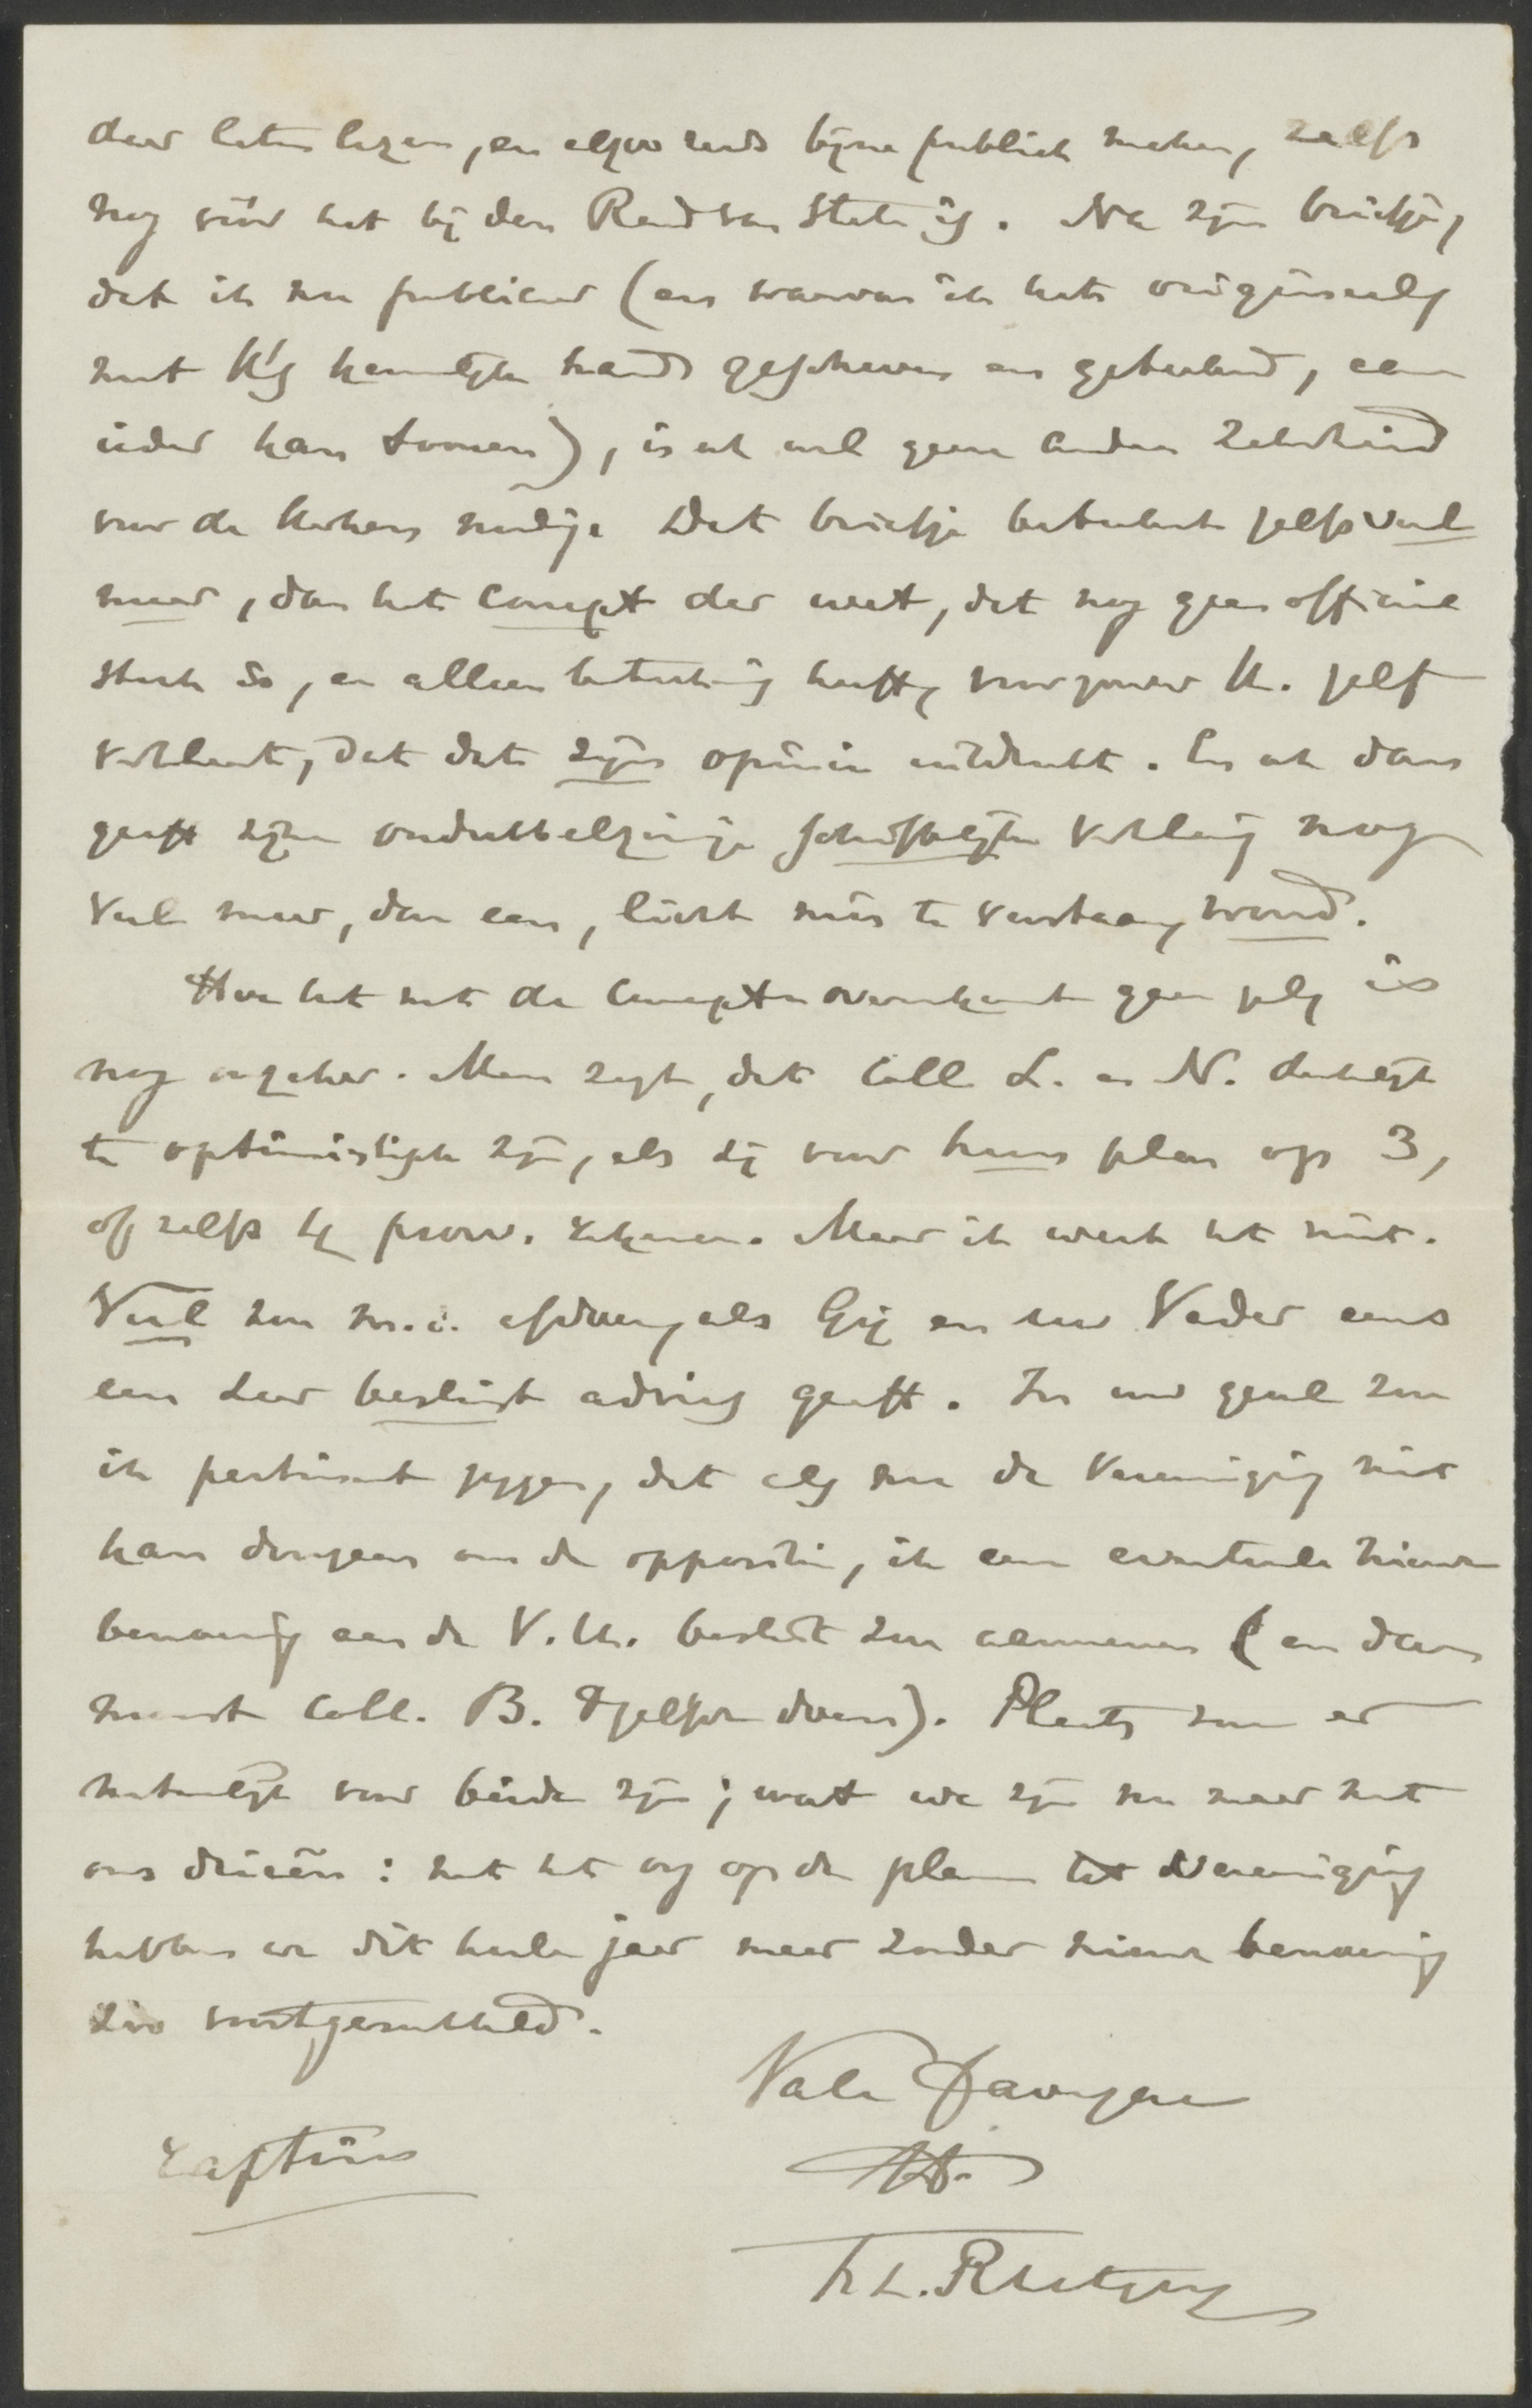 daar laten lezen, en alzoo reeds bijna publiek maken, zelfs
nog vóór het bij den Raad van State is. Na zijn briefje,
dat ik nu publiceer (en waarvan ik het origineel,
met K's kennelijke hand geschreven en geteekend, aan
ieder kan toonen), is ook wel geen andere zekerheid
voor de Kerken noodig. Dat briefje beteekent zelfs veel
meer, dan het concept der wet, dat nog geen officieel
stuk is, en alleen beteekenis heeft, voorzoover K. zelf
verklaart, dat dat zijn opinie uitdrukt. En ook dan
geeft zijne ondubbelzinnige schriftelijke verklaring nog
veel meer, dan een, licht mis te verstaan, woord.
Hoe het met de Concept overeenkomst gaan zal, is
nog onzeker. Men zegt, dat Coll. L. en N. dadelijk
te optimistisch zijn, als zij voor hun plan op 3,
of zelfs 4 prov. rekenen. Maar ik weet het niet.
Veel zou m.i. afhangen, als Gij en uw Vader eens
een zeer beslist advies geeft. In uw geval zou
ik pertinent zeggen, dat als nu de Vereeniging niet
kan doorgaan om de oppositie, ik een eventueele nieuwe
benoeming aan de V.U. beslist zou aannemen (en dan
moest Coll. B. hetzelfde doen). Plaats zou er
natuurlijk voor beiden zijn; want we zijn nu maar met
ons drieën: met het oog op de plannen tot Vereeniging
hebben we dit heele jaar maar zonder nieuwe benoeming
zoo voortgesukkeld.
Vale
t.t.
F.L. Rutgers